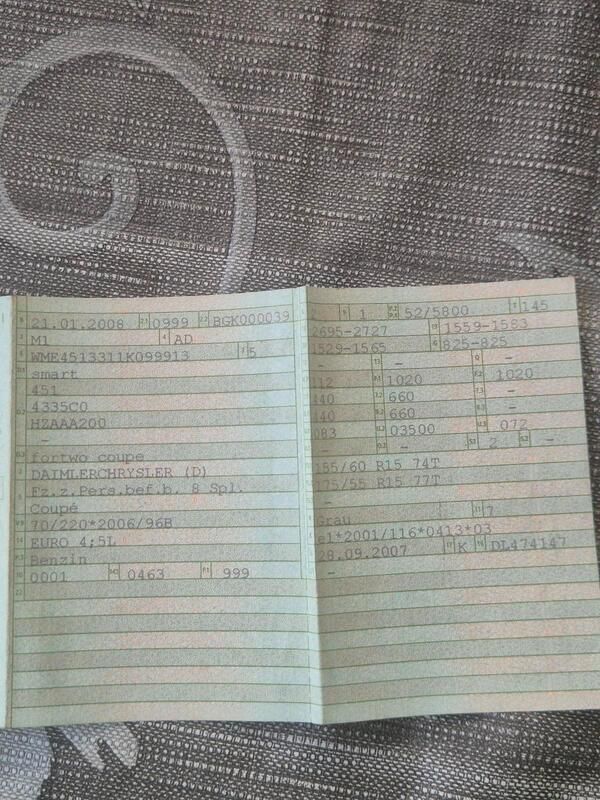 21.01.2008 2.1 0999 2.2 BGK000039
M1 4 AD
WME4513311K099913 3 5
smart
451
4335C0
HZAAA200
–
fortwo coupe
DAIMLERCHRYSLER (D)
Fz.z.Pers.bef.b. 8 Spl.
Coupé
70/220*2006/96B
EURO 4;5L
Benzin
0001 0463 P.1 999
22
9 1 52/5800 145
2695-2727 1559-1583
1529-1565 825-825
– –
112 1020 1020
440 660 –
440 660 –
083 03500 072
– 2 –
155/60 R15 74T
175/55 R15 77T
–
Grau 7
e1*2001/116*0413*03
28.09.2007 K DL474147
–